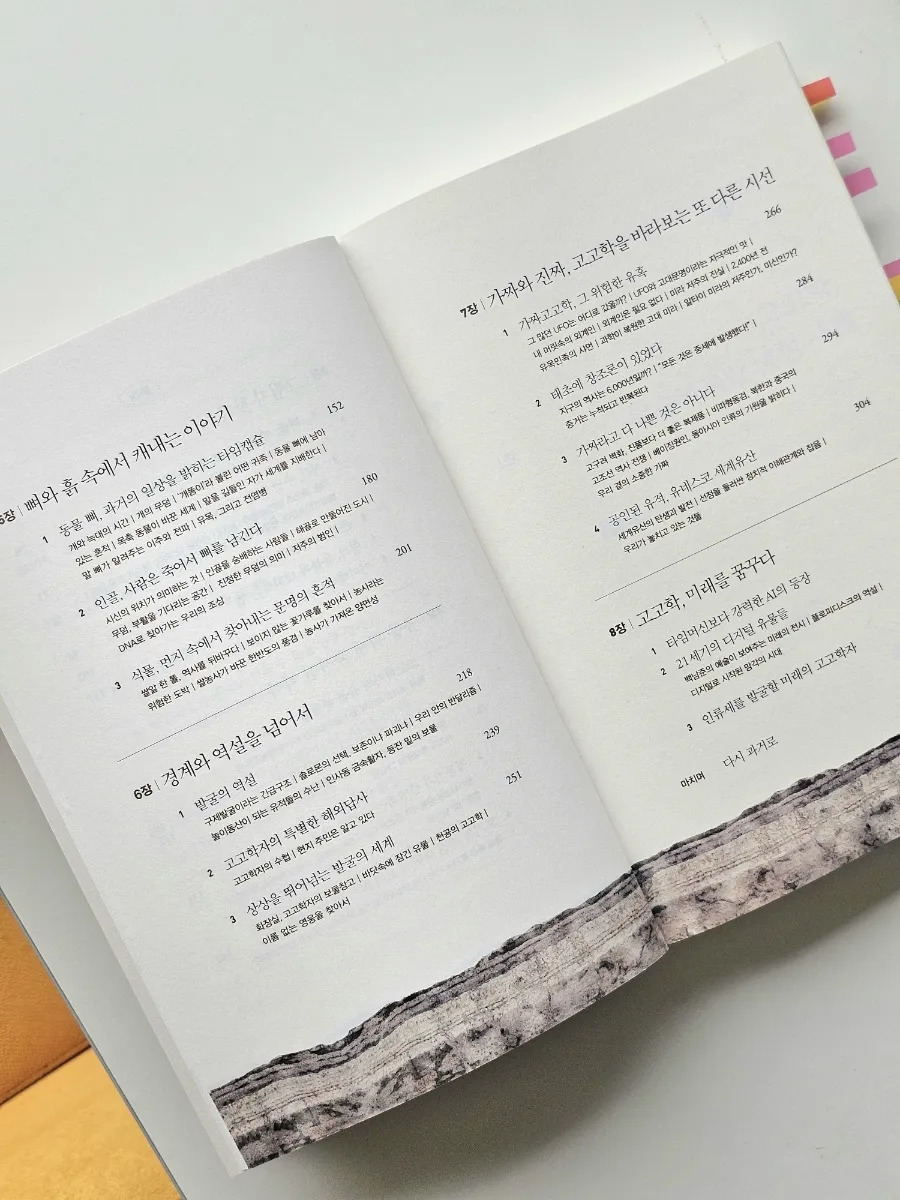 5장 | 뼈와 흙 속에서 캐내는 이야기
1 동물 뼈, 과거의 일상을 밝히는 타임캡슐 152
개와 늑대의 시간 | 개의 무덤 | '개똥이'라 불린 어떤 귀족 | 동물 뼈에 남아
있는 흔적 | 목축 동물이 바꾼 세계 | 말을 길들인 자가 세계를 지배한다 |
말 뼈가 알려주는 이주와 전파 | 유목, 그리고 전염병
2 인골, 사람은 죽어서 뼈를 남긴다 180
시신의 위치가 의미하는 것 | 인골을 숭배하는 사람들 | 해골로 만들어진 도시 |
무덤, 부활을 기다리는 공간 | 진정한 무덤의 의미 | 저주의 범인 |
DNA로 찾아가는 우리의 조상
3 식물, 먼지 속에서 찾아내는 문명의 흔적 201
쌀알 한 톨, 역사를 뒤바꾸다 | 보이지 않는 꽃가루를 찾아서 | 농사라는
위험한 도박 | 쌀농사가 바꾼 한반도의 풍경 | 농사가 가져온 양면성
6장 | 경계와 역설을 넘어서
1 발굴의 역설 218
구제발굴이라는 긴급구조 | 솔로몬의 선택, 보존이냐 파괴냐 | 우리 안의 반달리즘 |
놀이동산이 되는 유적들의 수난 | 인사동 금속활자, 등잔 밑의 보물
2 고고학자의 특별한 해외답사 239
고고학자의 수첩 | 현지 주민은 알고 있다
3 상상을 뛰어넘는 발굴의 세계 251
화장실, 고고학자의 보물창고 | 바닷속에 잠긴 유물 | 천공의 고고학 |
이름 없는 영웅을 찾아서
7장 | 가짜와 진짜, 고고학을 바라보는 또 다른 시선
1 가짜고고학, 그 위험한 유혹 266
그 많던 UFO는 어디로 갔을까? | UFO와 고대문명이라는 자극적인 맛 |
내 머릿속의 외계인 | 외계인은 필요 없다 | 미라 저주의 진실 | 2,400년 전
유목민족의 사면 | 과학이 복원한 고대 미라 | 알타이 미라의 저주인가, 미신인가?
2 태초에 창조론이 있었다 284
지구의 역사는 6,000년일까? | "모든 것은 중세에 발생했다!" |
증거는 누적되고 반복된다
3 가짜라고 다 나쁜 것은 아니다 294
고구려 벽화, 진품보다 더 좋은 복제품 | 비파형동검, 북한과 중국의
고조선 역사 전쟁 | 베이징원인, 동아시아 인류의 기원을 밝히다 |
우리 곁의 소중한 가짜
4 공인된 유적, 유네스코 세계유산 304
세계유산의 탄생과 발전 | 선정을 둘러싼 정치적 이해관계와 잡음 |
우리가 놓치고 있는 것들
8장 | 고고학, 미래를 꿈꾸다
1 타임머신보다 강력한 AI의 등장
2 21세기의 디지털 유물들
백남준의 예술이 보여주는 미래의 전시 | 플로피디스크의 역설 |
디지털로 시작된 망각의 시대
3 인류세를 발굴할 미래의 고고학자
마치며 다시 과거로